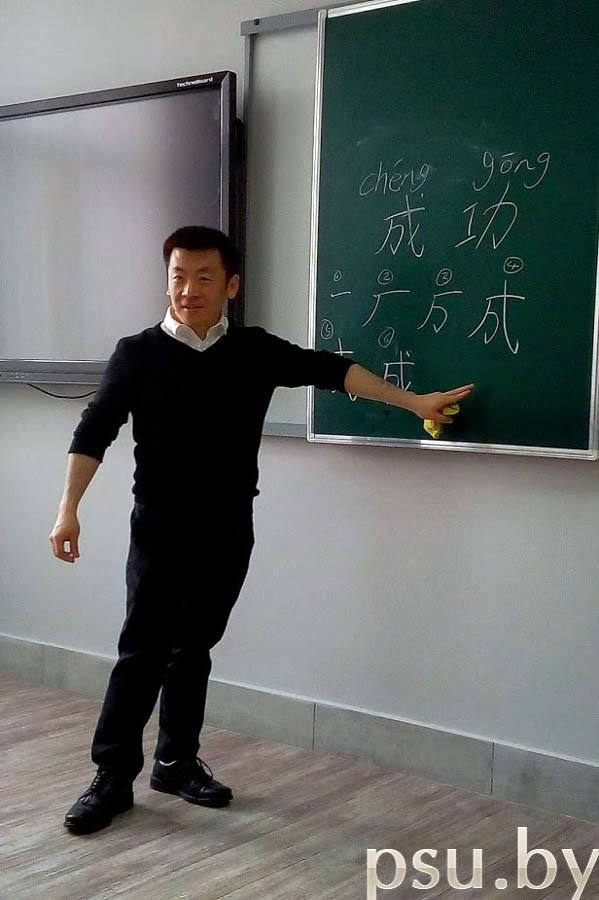 TechnoBoard
chéng gōng
成 功
① 一 ② 厂 ③ 万 ④ 成
⑤ ⑥ 成
psu.by